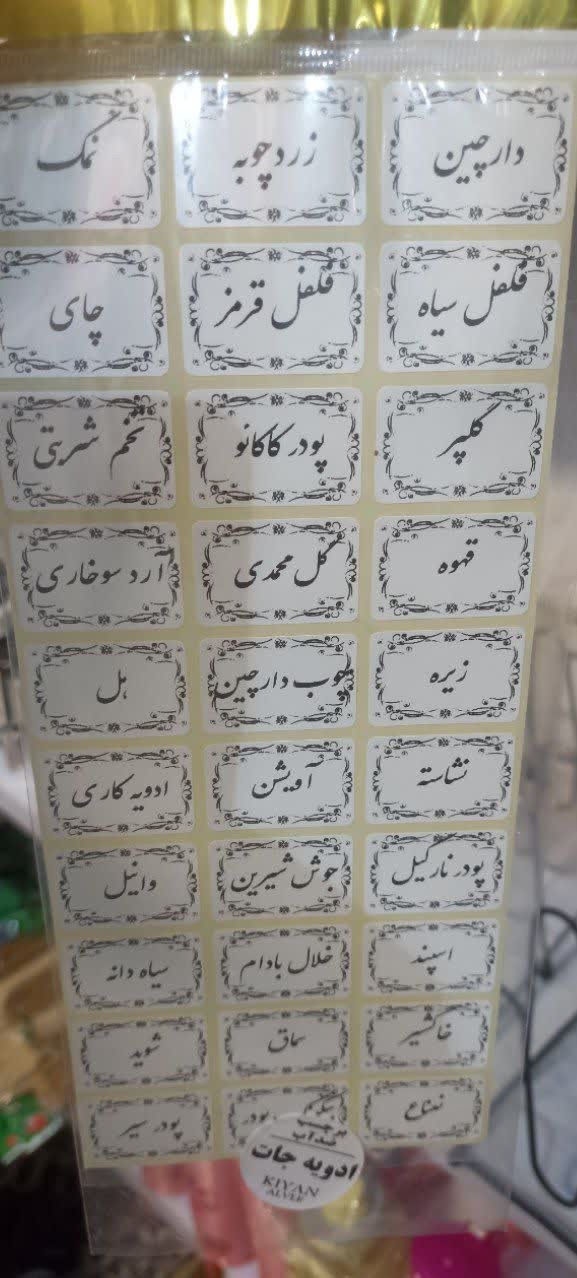 دارچین زردچوبه نمک
فلفل سیاه فلفل قرمز چای
گلپر پودر کاکائو تخم شربتی
قهوه گل محمدی آرد سوخاری
زیره چوب دارچین هل
نشاسته آویشن ادویه کاری
پودر نارگیل جوش شیرین وانیل
اسپند خلال بادام سیاه دانه
خاکشیر سماق شوید
نعناع پودر پودر سیر
برچسب
ضد آب
ادویه جات
KIYAN
ALVER